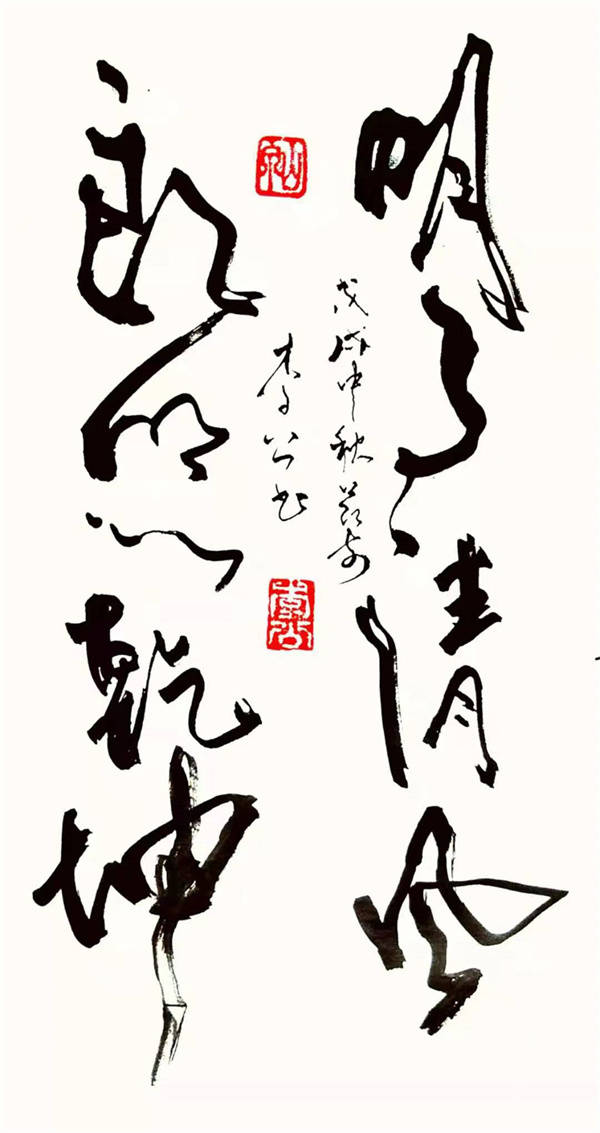 明月清风
朗照乾坤
戊戌中秋节前
李公书
李公